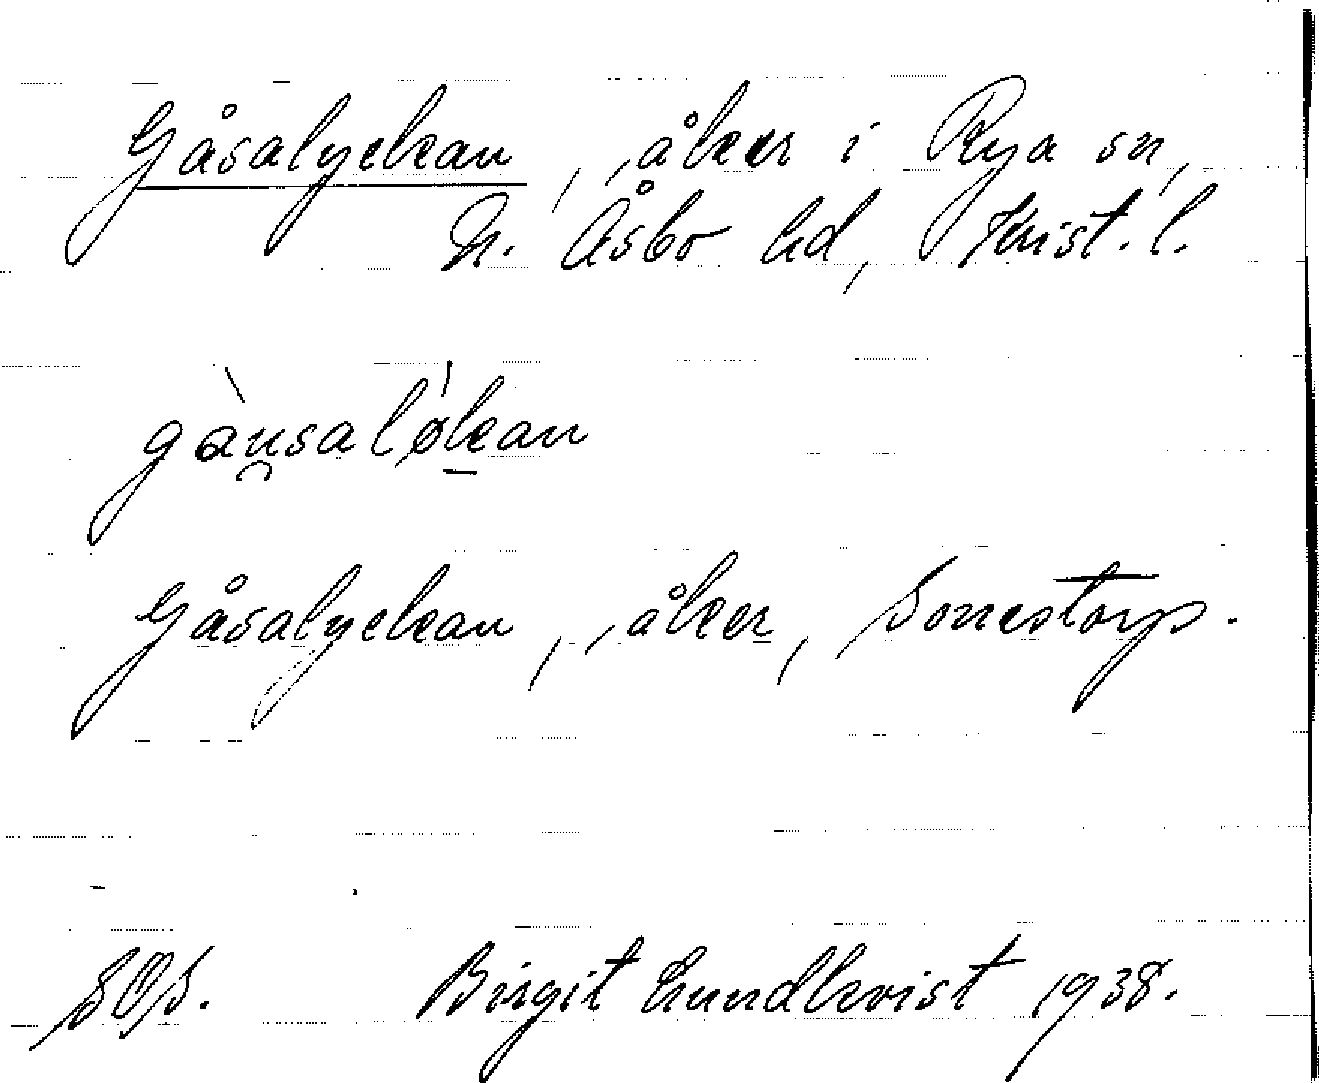 Gåsalyckan, åker i Rya sn,
N. Åsbo hd, Krist. l.
gàu̯saló̱kan
Gåsalyckan, åker, Sonnestorp.
SOS.      Birgit Lundkvist 1938.